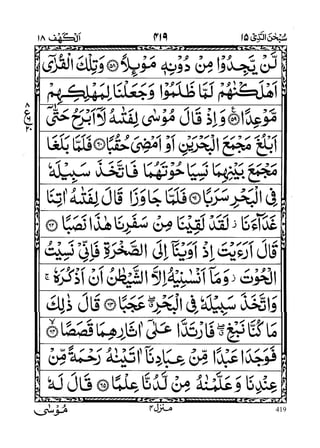 سُبْحٰنَ الَّذِيْٓ ١٥
٤١٩
اَلْكَهْف ١٨
لَّنْ يَّجِدُوْا مِنْ دُوْنِهٖ مَوْىِٕلًا ﴿٥٨﴾ وَتِلْكَ الْقُرٰٓى
اَهْلَكْنٰهُمْ لَمَّا ظَلَمُوْا وَجَعَلْنَا لِمَهْلِكِهِمْ
مَّوْعِدًا ﴿٥٩﴾ وَاِذْ قَالَ مُوْسٰى لِفَتٰىهُ لَآ اَبْرَحُ حَتّٰٓى
اَبْلُغَ مَجْمَعَ الْبَحْرَيْنِ اَوْ اَمْضِيَ حُقُبًا ﴿٦٠﴾ فَلَمَّا بَلَغَا
مَجْمَعَ بَيْنِهِمَا نَسِيَا حُوْتَهُمَا فَاتَّخَذَ سَبِيْلَهٗ
فِي الْبَحْرِ سَرَبًا ﴿٦١﴾ فَلَمَّا جَاوَزَا قَالَ لِفَتٰىهُ اٰتِنَا
غَدَآءَنَا ز لَقَدْ لَقِيْنَا مِنْ سَفَرِنَا هٰذَا نَصَبًا ﴿٦٢﴾
قَالَ اَرَءَيْتَ اِذْ اَوَيْنَآ اِلَى الصَّخْرَةِ فَاِنِّيْ نَسِيْتُ
الْحُوْتَ ز وَمَآ اَنْسٰىنِيْهُ اِلَّا الشَّيْطٰنُ اَنْ اَذْكُرَهٗ ۚ
وَاتَّخَذَ سَبِيْلَهٗ فِي الْبَحْرِ ۖ عَجَبًا ﴿٦٣﴾ قَالَ ذٰلِكَ
مَا كُنَّا نَبْغِ ۖ فَارْتَدَّا عَلٰٓى اٰثَارِهِمَا قَصَصًا ﴿٦٤﴾
فَوَجَدَا عَبْدًا مِّنْ عِبَادِنَآ اٰتَيْنٰهُ رَحْمَةً مِّنْ
عِنْدِنَا وَعَلَّمْنٰهُ مِنْ لَّدُنَّا عِلْمًا ﴿٦٥﴾ قَالَ لَهٗ
مُوْسٰى
منزل ٤
419